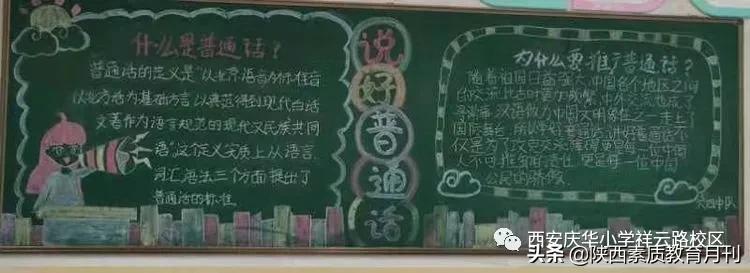 什么是普通话？
普通话的定义是"以北京语音为标准音
以北方话为基础方言，以典范得到现代白话
文著作为语言规范的现代汉民族共同
语"这个定义实质上从语言
词汇语法三个方面提出了
普通话的标准
说
好
普
通
话
为什么要推广普通话？
随着祖国日益强大，中国各个地区之间
的交流比古时更加频繁，中外交流也成了
汉语做为中国文明的
国际舞台，所以学好普通话讲好普通话不
仅是为了
人不可推卸的责任，更是每一位中国
公民的骄傲
六四中队
西安庆华小学祥云路校区
头条@陕西素质教育月刊